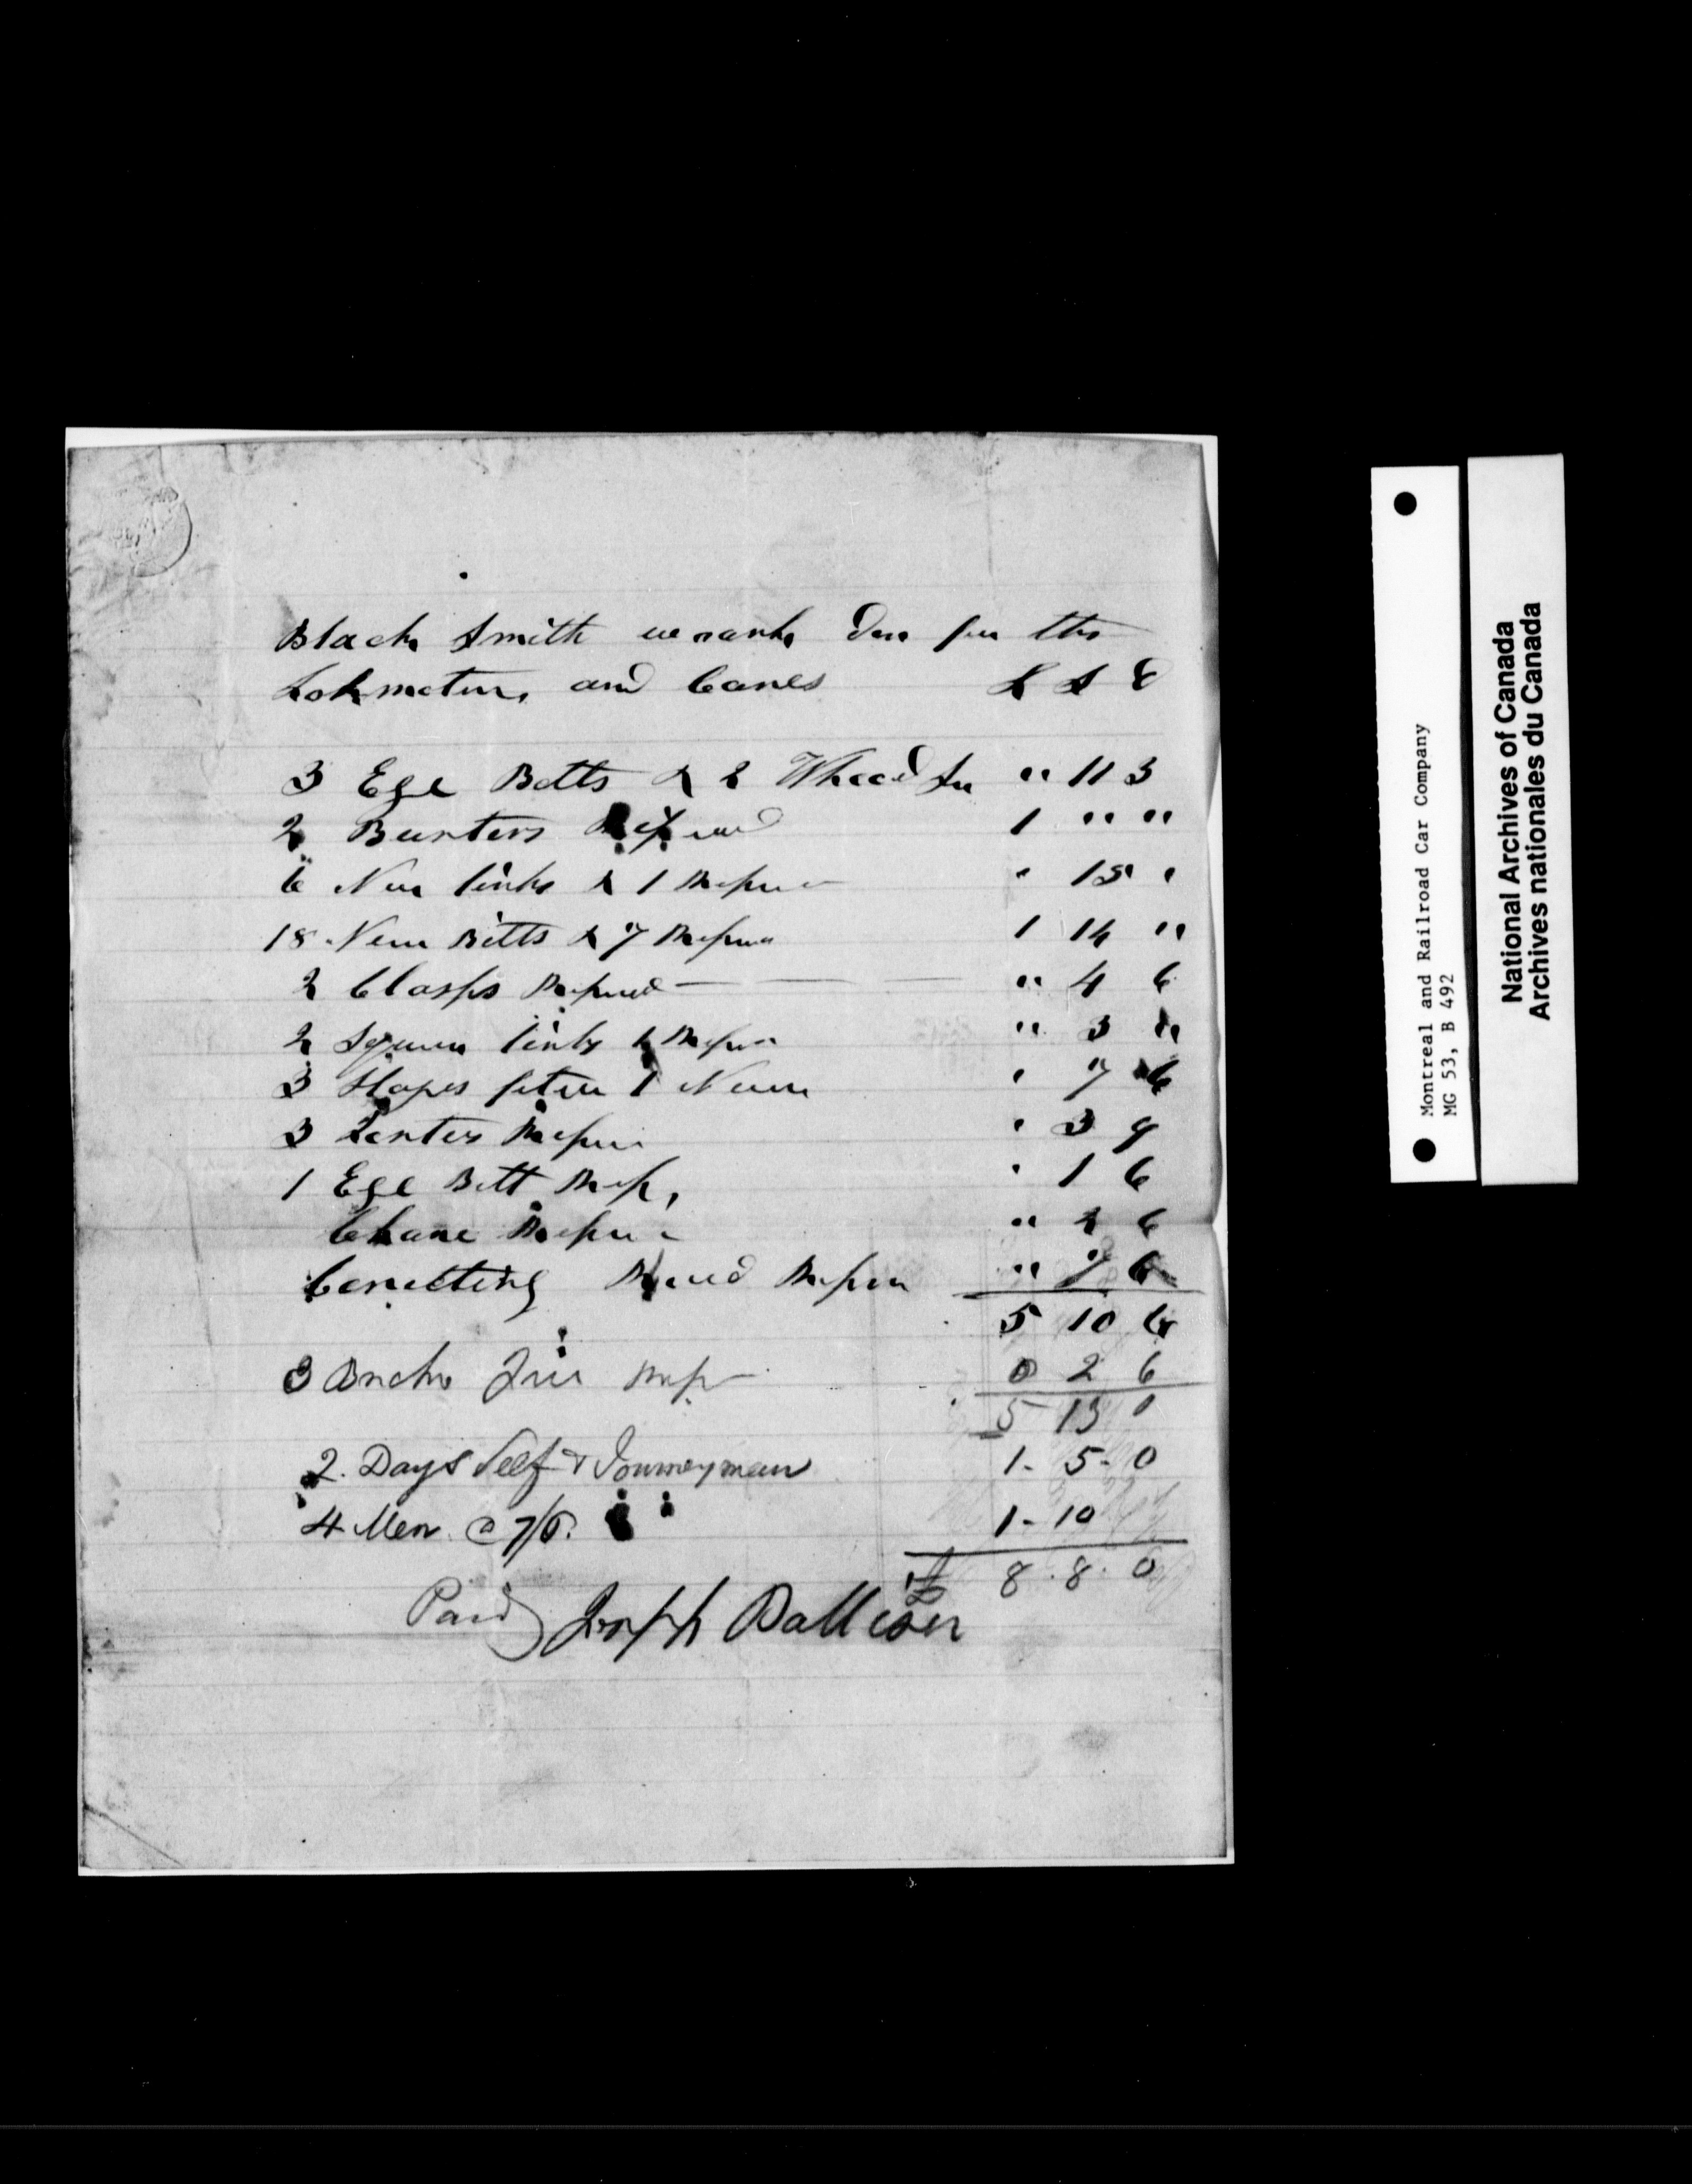 Black Smith woark Don for the
Lokmotive and Cares L S D
3 Ege Bolts & 2 Wheed " 11 3
2 Bunters 1 " "
6 New links & 1 Repar " 15 "
18 New Bolts & 7 Repar 1 14 "
2 Clasps Repared " 4 6
2 Square links Repar " 3 "
3 1 New " 7 6
3 Repar " 3 9
1 Ege Bolt Rep, " 1 6
Chane Repar " 2 6
Conecting Repar " 7 6
5 10 6
3 Rep 0 2 6
5 13 1
2. Days Self & Journeyman 1- 5- 0
4 Men @ 7/6. 1- 10
£ 8. 8. 0
Paid Joseph
Montreal and Railroad Car Company
MG 53, B 492
National Archives of Canada
Archives nationales du Canada